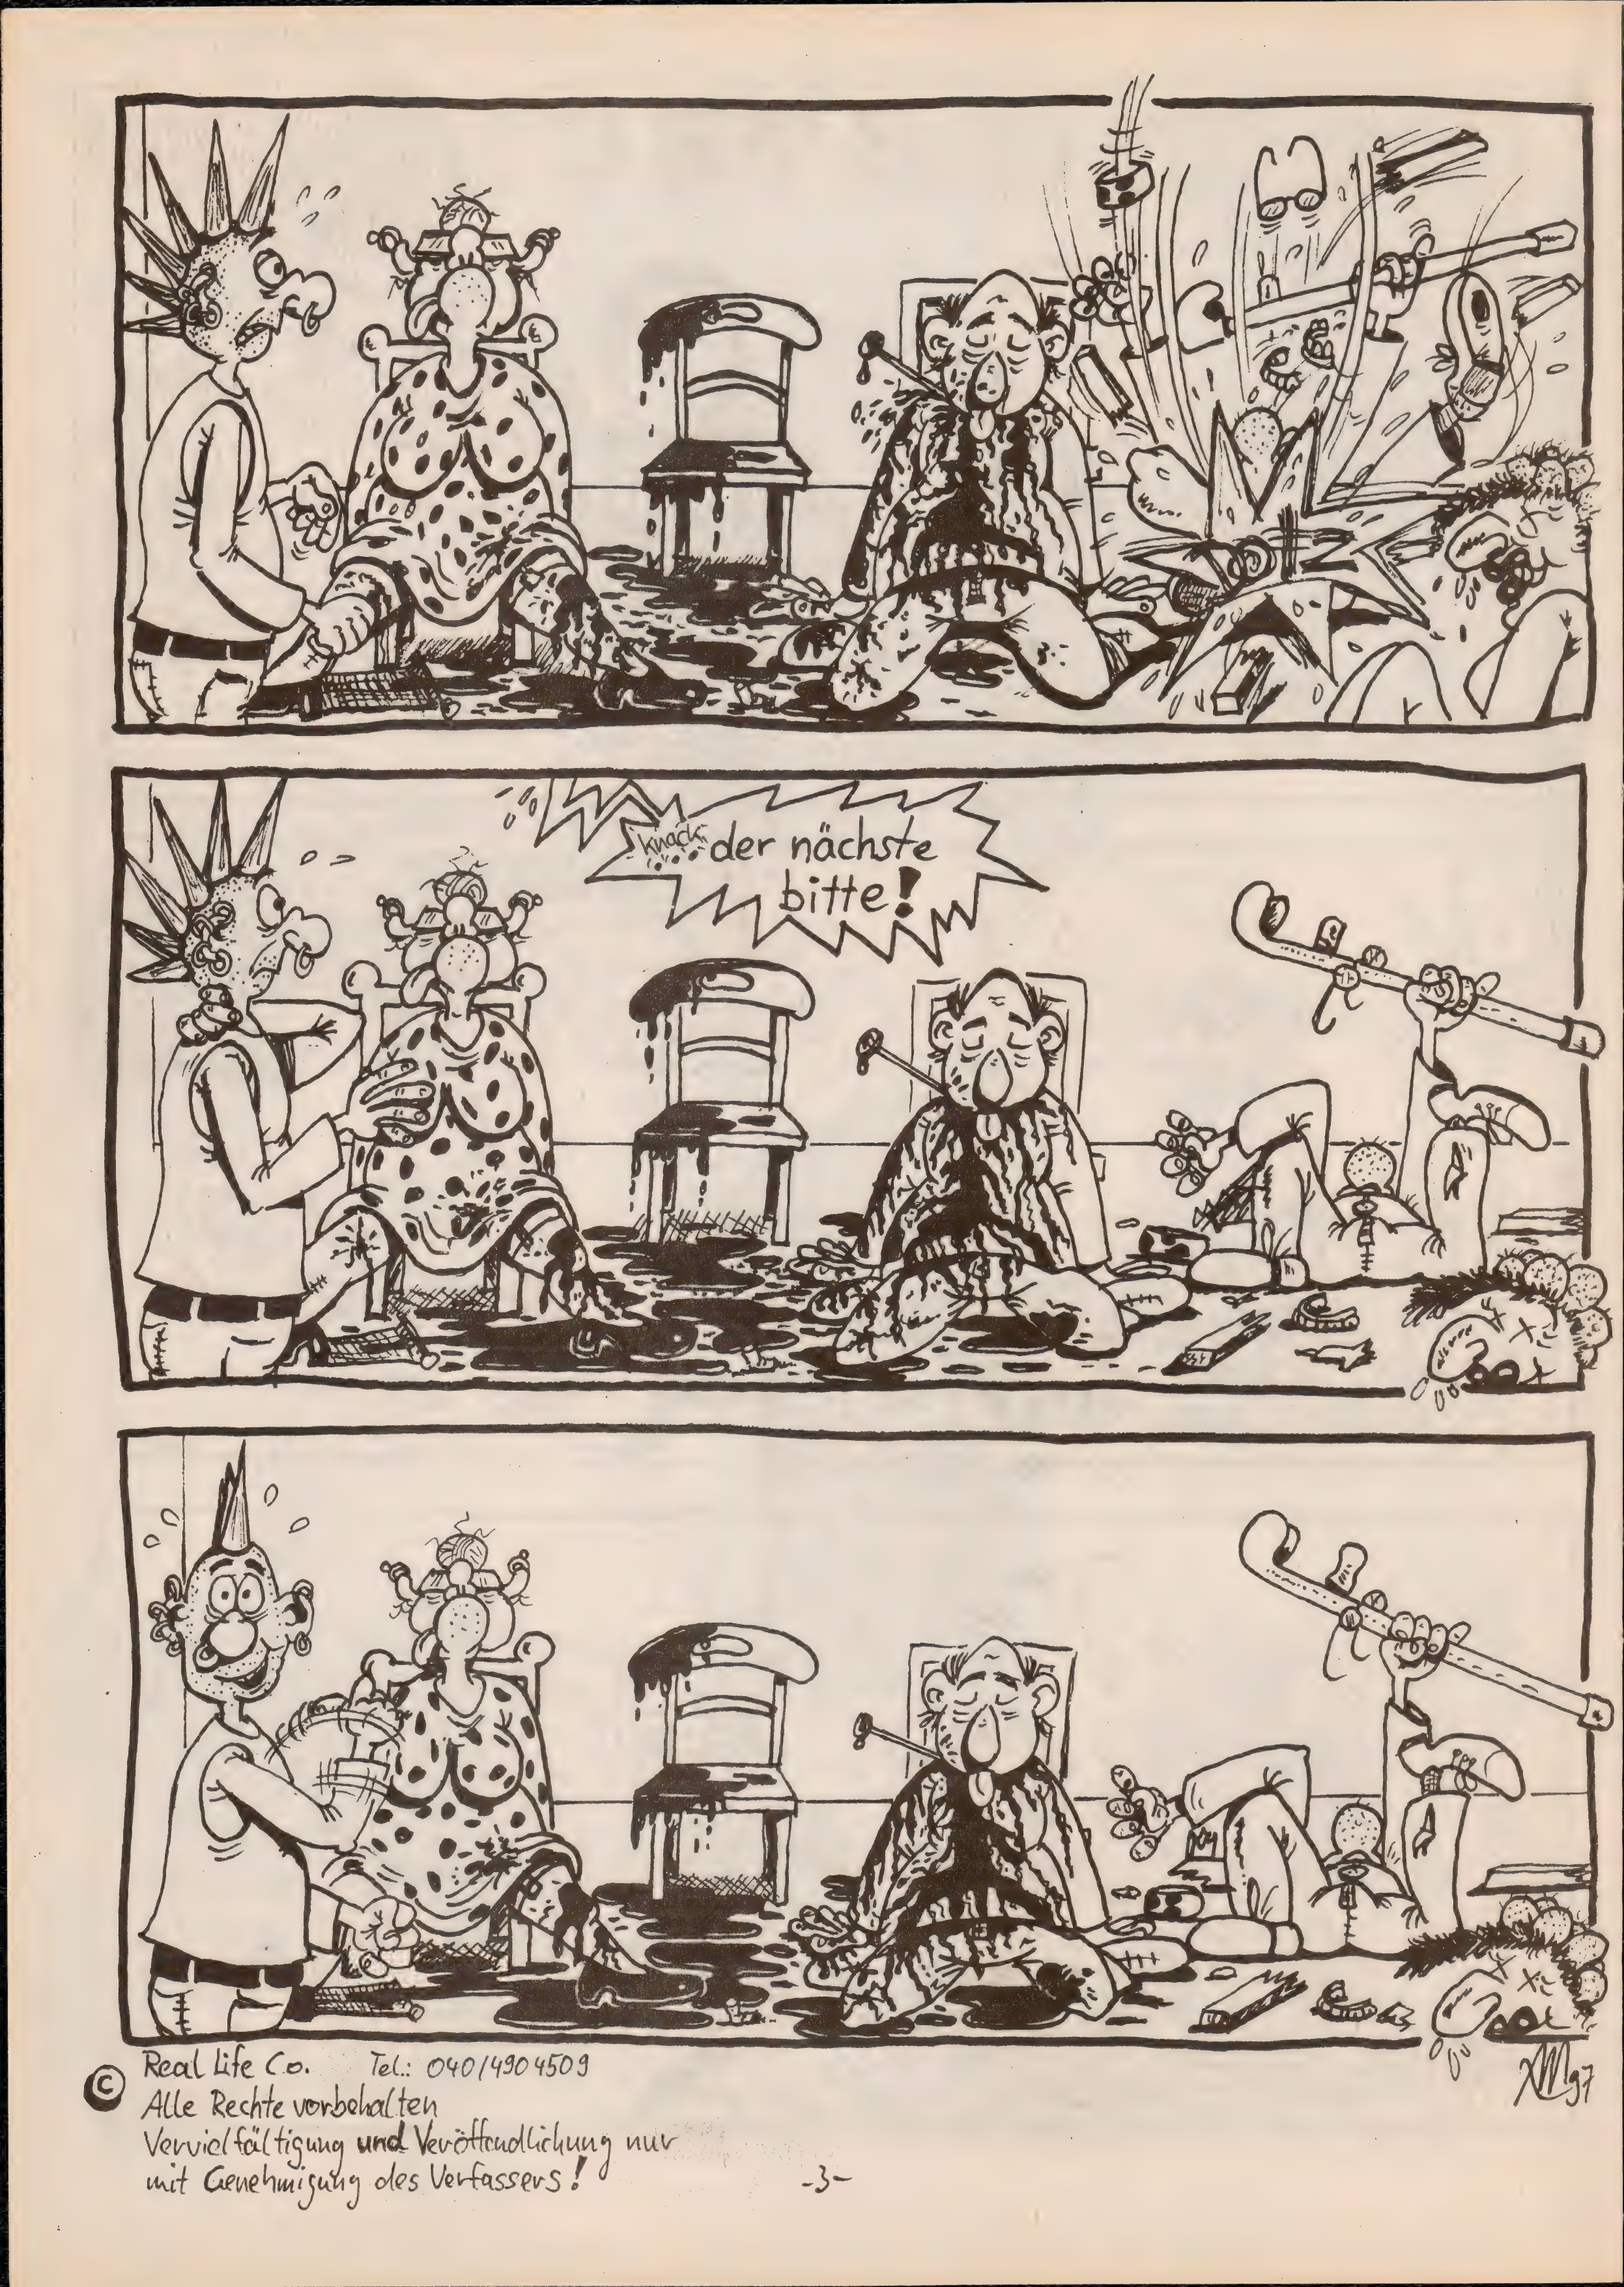 KRZ
knack
der nächste
bitte!
© Real Life Co. Tel.: 040/4904509
Alle Rechte vorbehalten
Vervielfältigung und Veröffendlichung nur
mit Genehmigung des Verfassers!
-3-
97